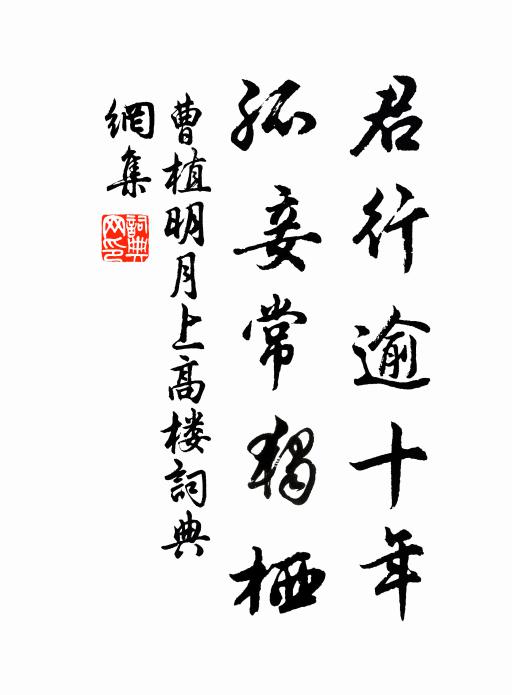 君行逾十年
孤妾常獨栖
曹植明月上高楼詞典
網集
詞典网印